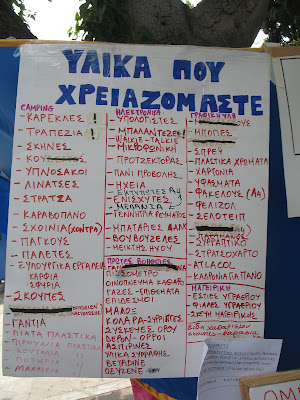 ΥΛΙΚΑ ΠΟΥ
ΧΡΕΙΑΖΟΜΑΣΤΕ
CAMPING
- ΚΑΡΕΚΛΕΣ !
- ΤΡΑΠΕΖΙΑ !
- ΣΚΗΝΕΣ
- ΚΟΥ
- ΥΠΝΟΣΑΚΟΙ
- ΛΙΝΑΤΣΕΣ
- ΣΤΡΑΤΖΑ
- ΚΑΡΑΒΟΠΑΝΟ
- ΣΧΟΙΝΙΑ (ΧΟΝΤΡΑ)
- ΠΑΓΚΟΥΣ
- ΠΑΛΕΤΕΣ
- ΞΥΛΟΥΡΓΙΚΑ ΕΡΓΑΛΕΙΑ
ΚΑΡΦΙΑ
ΣΦΥΡΙΑ
- ΣΚΟΥΠΕΣ
- ΓΑΝΤΙΑ
- ΠΙΑΤΑ ΠΛΑΣΤΙΚΑ
- ΠΟΤΗΡΙΑ
- ΜΑΧΑΙΡΙΑ
ΗΛΕΚΤΡΟΝΙΚΑ
- ΥΠΟΛΟΓΙΣΤΕΣ
- ΜΠΑΛΑΝΤΕΖΕΣ !
- WALKIE-TALKIE
- ΜΙΚΡΟΦΩΝΙΚΗ
- ΠΡΟΤΖΕΚΤΟΡΑΣ
- ΠΑΝΙ ΠΡΟΒΟΛΗΣ
- ΗΧΕΙΑ
- ΕΚΤΥΠΩΤΕΣ Α4
- ΕΝΙΣΧΥΤΕΣ
- ΓΕΝΝΗΤΡΙΑ ΡΕΥΜΑΤΟΣ
- ΜΠΑΤΑΡΙΕΣ
- ΒΟΥΒΟΥΖΕΛΕΣ
- ΜΕΙΚΤΗΣ ΗΧΟΥ
ΠΡΩΤΕΣ ΒΟΗΘΕΙΕΣ
- ΟΙΝΟΠΝΕΥΜΑ ΚΑΘΑΡΟ
- ΓΑΖΕΣ - ΕΠΙΘΕΜΑΤΑ
- ΕΠΙΔΕΣΜΟΙ
- ΜΑΛΟΞ
- ΚΟΛΑΡΑ - ΣΥΡΙΓΓΕΣ
- ΣΥΣΚΕΥΕΣ ΟΡΟΥ
- ΟΡΡΟΙ
- ΑΣΠΙΡΙΝΕΣ
- ΥΛΙΚΑ ΣΥΡΡΑΦΗΣ
- ΒΕΤΑΔΙΝΕ
ΓΡΑΦΙΚΗ ΥΛΗ
- ΜΠΟΓΙΕΣ
- ΣΠΡΕΥ
- ΠΛΑΣΤΙΚΑ ΧΡΩΜΑΤΑ
- ΧΑΡΤΟΝΙΑ
- ΥΦΑΣΜΑΤΑ
- ΦΑΚΕΛΟΥΣ (Α4)
- ΦΕΛΙΖΟΛ
- ΣΕΛΟΤΕΙΠ
- ΣΥΡΡΑΠΤΙΚΟ
- ΣΤΡΑΤΣΟΧΑΡΤΟ
- ATLACOL
- ΚΑΛΩΔΙΑ ΓΙΑ ΠΑΝΟ
ΜΑΓΕΙΡΙΚΗ
- ΕΣΤΙΕΣ ΥΓΡΑΕΡΙΟΥ
- ΦΙΑΛΕΣ ΥΓΡΑΕΡΙΟΥ